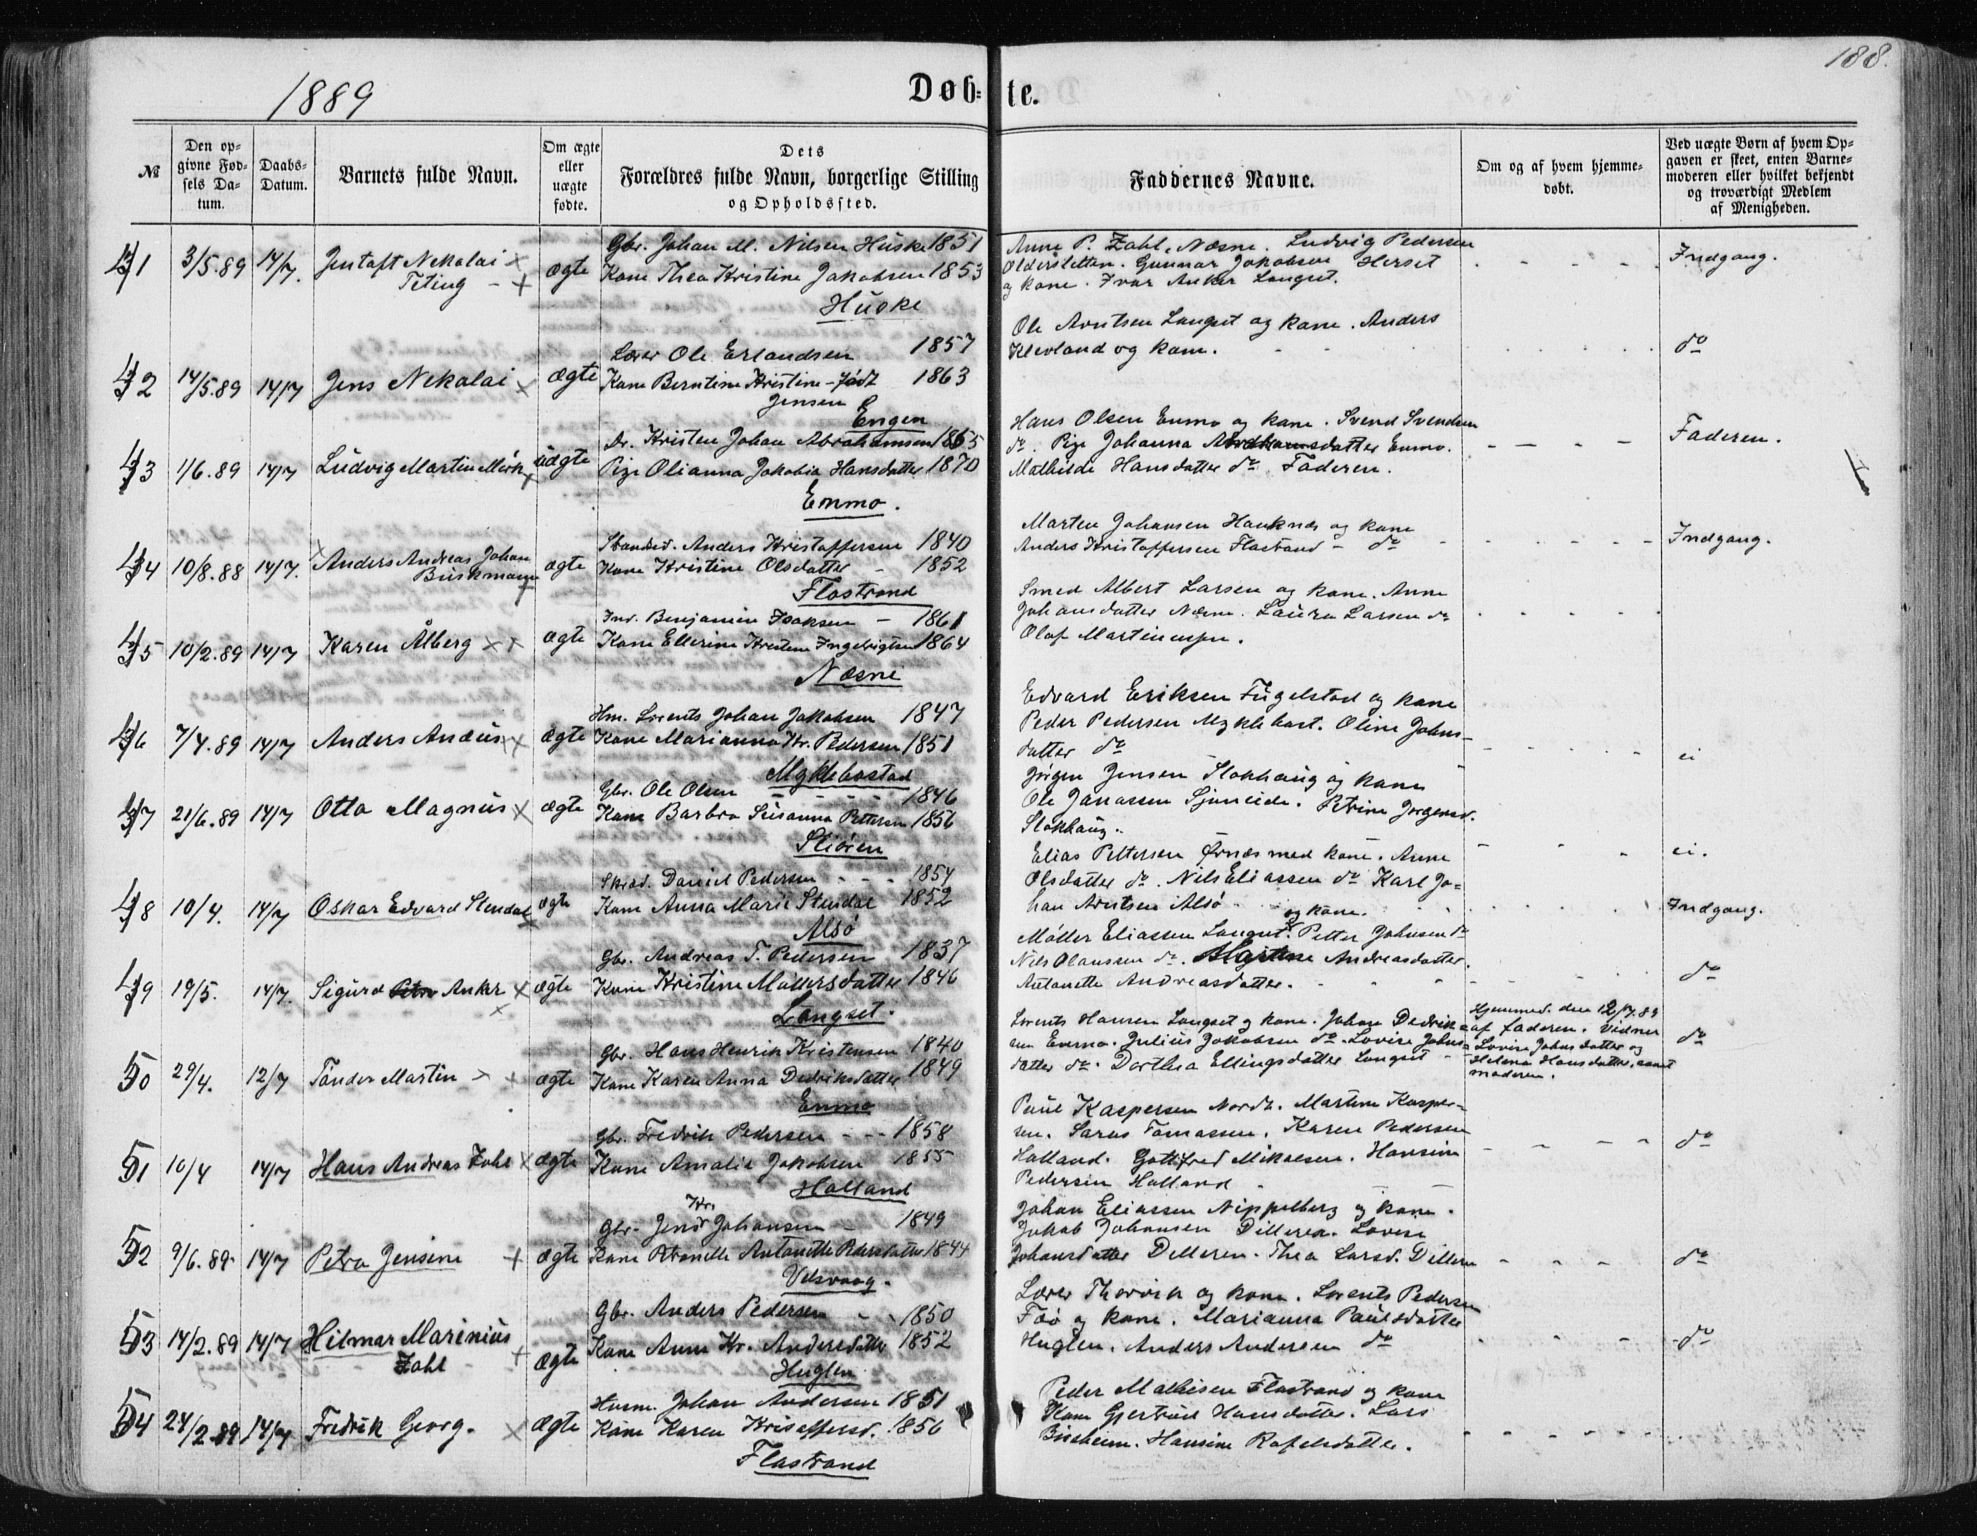 1889
Døb-te.
188.
№
Den opgivne Fødsels Datum.
Daabs-Datum.
Barnets fulde Navn.
Om ægte eller uægte fødte.
Dets Forældres fulde Navn, borgerlige Stilling og Opholdssted.
Faddernes Navne.
Om og af hvem hjemmedøbt.
Ved uægte Børn af hvem Opgaven er skeet, enten Barnemoderen eller hvilket bekjendt og troværdigt Medlem af Menigheden.
41 3/5.89 14/7. Gustaft Nekolai
Teting
ægte
Gbr. Johan M. Nilsen Huske 1851
Kone Thea Kristine Jakobsen 1853
Huske
Anne P. Zahl, Næsne. Ludvig Pedersen
Oldersletten. Gunnar Jakobsen Herset
og kone. Ivar Anker Langset.
Indgang.
42 14/5.89 14/7 Jens Nekolai
ægte
Lærer Ole Erlandsen 1857
Kone Berntine Kristine født 1863
Jensen
Engen
Ole Arntsen Langset og kone. Anders
Klevland og kone.
do
43 1/6.89 14/7 Ludvig Martin Mørk
uægte
Dr. Kristen Johan Abrahamsen 1865
Pige Olianna Jakobia Hansdatter 1870
Enmo.
Hans Olsen Enmo og kone. Svend Svendsen
do. Pige Johanna Abrahamsdatter Enmo.
Mathilde Hansdatter do. Faderen.
Faderen.
44 10/8.88 14/7. Anders Andreas Johan
Buskmann
ægte
Strandsd. Anders Kristoffersen 1840
Kone Kristine Olsdatter - 1852
Flostrand
Marten Johansen Hauknes og kone
Anders Kristoffersen Flostrand - do
Indgang.
45 10/2.89 14/7 Karen Ålberg
ægte
Inr. Benjamin Isaksen - 1861
Kone Ellerine Kristine Ingebrigtsen 1864
Næsne
Smed Albert Larsen og kone. Anne
Johansdatter Næsne. Laura Larsen do
Olaf Martinussen.
46 7/4.89 14/7 Anders Andeus
ægte
Hm. Lorents Johan Jakobsen 1847
Kone Marianna Kr. Pedersen 1851
Myklebostad
Edvard Eriksen Fugelstad og kone
Peder Pedersen Myklebost. Oline Johns-
datter do
ei
47 21/6.89 14/7 Otto Magnus
ægte
Gbr. Ole Olsen 1846
Kone Barbra Susanna Pettersen 1856
Sliøren
Jørgen Jensen Stokhaug og kone
Ole Janassen Sjoneide. Petrine Jørgensd.
Stokhaug.
ei.
48 10/4. 14/7 Oskar Edvard Stendal
ægte
Skræd. Daniel Pedersen 1854
Kone Anna Marie Stendal 1852
Alsø
Elias Pettersen Ørnes med kone. Anne
Olsdatter do. Nils Eliassen do Karl Jo-
han Arntsen Alsø
Indgang.
49 19/5. 14/7. Sigurd Anker
ægte
Gbr. Andreas T. Pedersen 1837
Kone Kristine Møllersdatter 1846
Langset.
og kone.
Møller Eliassen Langset. Petter Johnsen do
Nils Olaussen do. Andreasdatter.
Antonette Andreasdatter.
do
50 29/4. 12/7 Tønder Martin
ægte
Gbr. Hans Henrik Kristensen 1840
Kone Karen Anna Dedriksdatter 1849
Enmo
Lorents Hansen Langset og kone. Johan Dedrik-
sen Enmo. Julius Jakobsen do. Lovise Johns-
datter do. Dorthea Ellingsdatter Langset
Hjemmed. den 12/7.89
af faderen. Vidner
Lovise Johnsdatter og
Helena Hansdatter, samt
moderen.
do
51 10/4 14/7 Hans Andreas Zahl
ægte
Gbr. Fredrik Pedersen - - 1858
Kone Amalie Jakobsen 1855
Holland
Paul Kaspersen Nordt. Martine Kasper-
sen. Saras Tomassen. Karen Pedersen
Holland. Gottfred Mikalsen. Hansine
Pedersen Holland
do
52 9/6.89 14/7 Petra Jensine
ægte
Kr.
Gbr. Jens Johansen - 1849
Kone Petronelle Antonette Pedersdatter 1844
Utsvaag.
Johan Eliassen Nippelberg og kone.
Jakob Johansen Dilleren. Lovise
Johansdatter Dilleren. Thea Larsd. Dilleren
do
53 14/2.89 14/7 Hilmar Marinius
Zahl
ægte
Gbr. Anders Pedersen 1850
Kone Anne Kr. Andersdatter 1852
Huglen
Lærer Thorvik og kone. Lorents Pedersen
Faø og kone. Marianna Paulsdatter
Huglen. Anders Andersen do
do
54 24/2.89 14/7 Fredrik Georg.
ægte
Husm. Johan Andersen 1851
Kone Karen Kristoffersd. 1856
Flostrand
Peder Mathisen Flostrand og kone
Kone Gjertrud Hansdatter. Lars
Buskheim. Hansine Rafelsdatter.